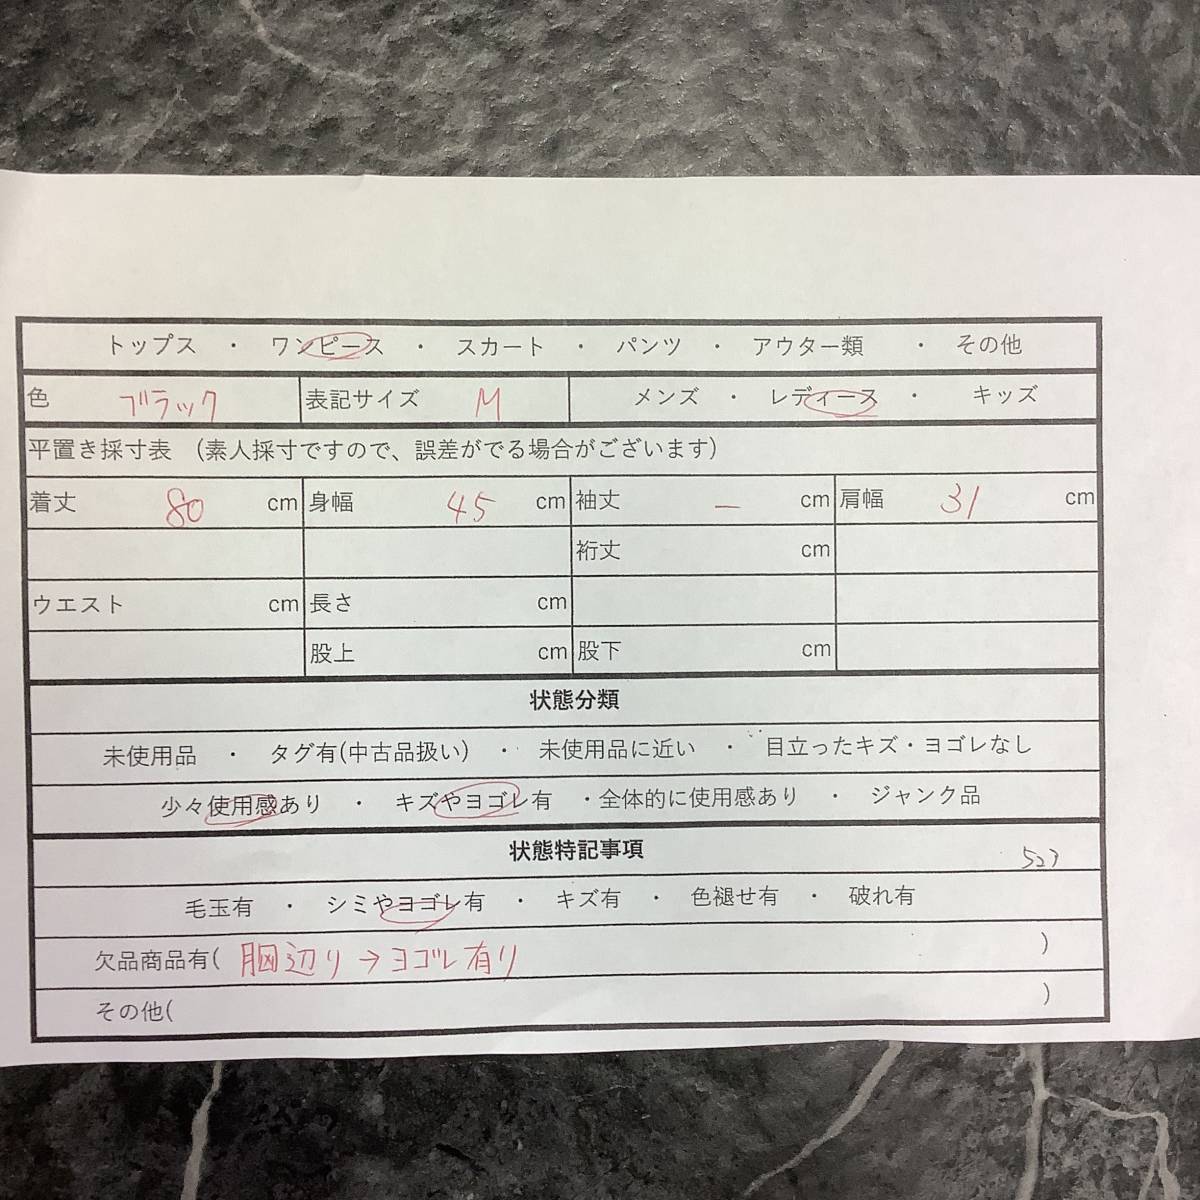 トップス ・ ワンピース ・ スカート ・ パンツ ・ アウター類 ・ その他
色 ブラック 表記サイズ M メンズ ・ レディース ・ キッズ
平置き採寸表 (素人採寸ですので、誤差がでる場合がございます)
着丈 80 cm 身幅 45 cm 袖丈 － cm 肩幅 31 cm
裄丈 cm
ウエスト cm 長さ cm
股上 cm 股下 cm
状態分類
未使用品 ・ タグ有(中古品扱い) ・ 未使用品に近い ・ 目立ったキズ・ヨゴレなし
少々使用感あり ・ キズやヨゴレ有 ・全体的に使用感あり ・ ジャンク品
状態特記事項
毛玉有 ・ シミやヨゴレ有 ・ キズ有 ・ 色褪せ有 ・ 破れ有
欠品商品有( 胸辺り→ヨゴレ有り )
その他( )